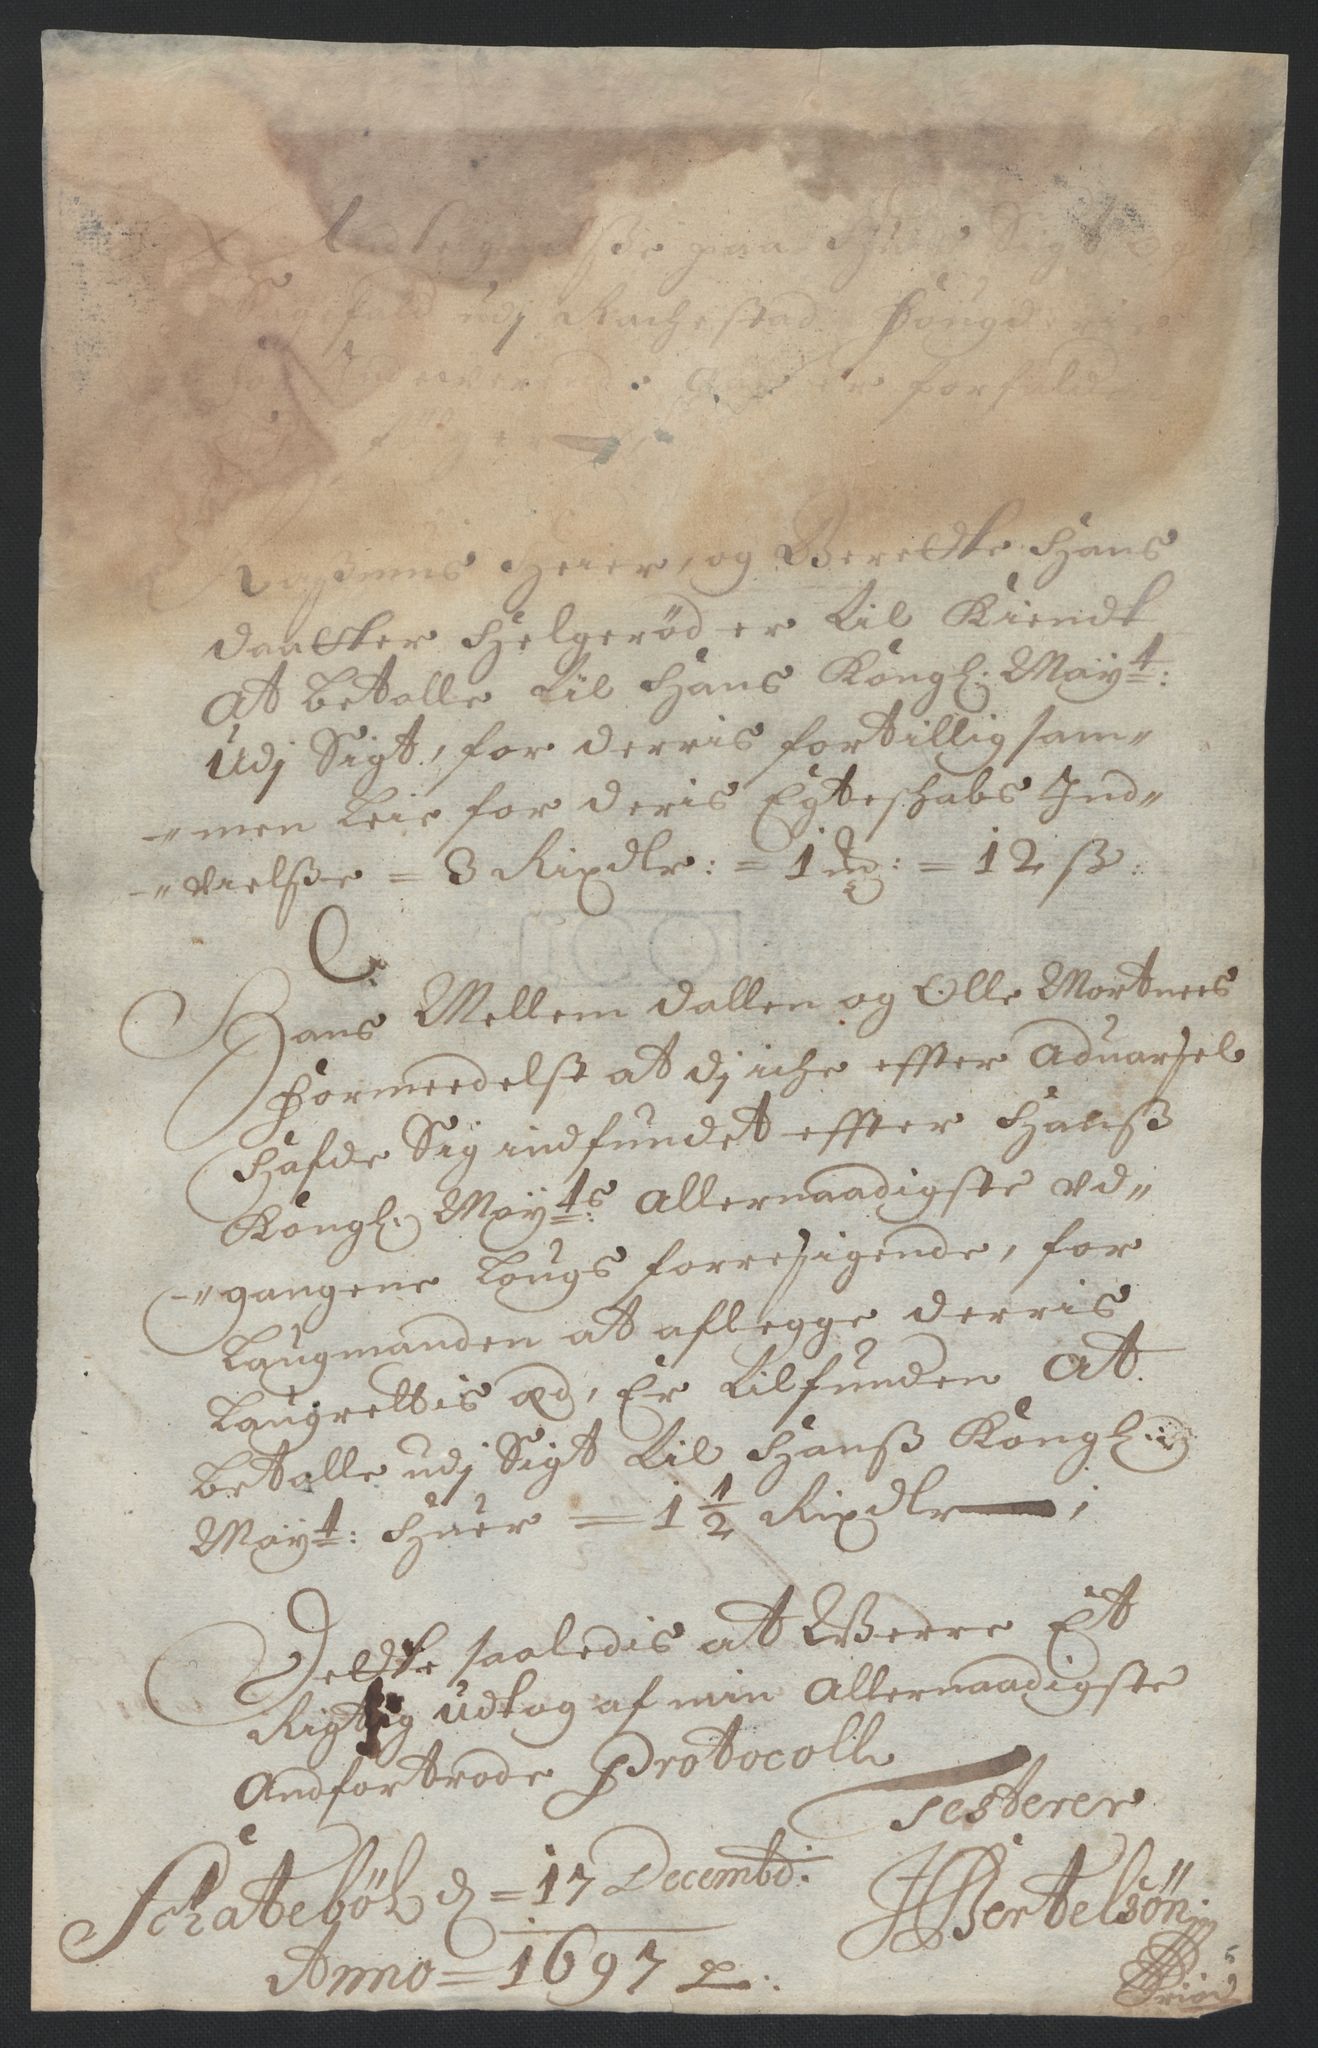 paa
Sagefald udj Rachestad
er forfalden
Rasmus Heier, og Berethe Hans
daatter Hielgerød er til Kiendt
At betalle til Hans Kongl: Mayt:
Udj Sigt, for derris fortillig sam„
„men Leie for deris Egteschabs Ind„
„vielsse = 3 Rixdlr: = 1 mʒ: = 12 ß:
Hans Mellem dallen og Olle Mortnes
Formeedelst at dj iche effter Aduarsel
Hafde Sig indfundet effter Hanß
Kongl: Mayts: Allernaadigste vd„
„gangene Lougs forresigende, for
Laugmanden at aflegge derris
Laugrettis æd, Er tilfunden At
betalle udj Sigt til Hanß Kongl:
Mayt: Huer = 1 1/2 Rixdlr
Dette saaledis at Werre Et
Rigtig Udtog af min Allernaadigste
Andfortrode Protocoll
Testerer
Schatebøl d = 17 Decembd:
Anno = 1697
HBertelsøn